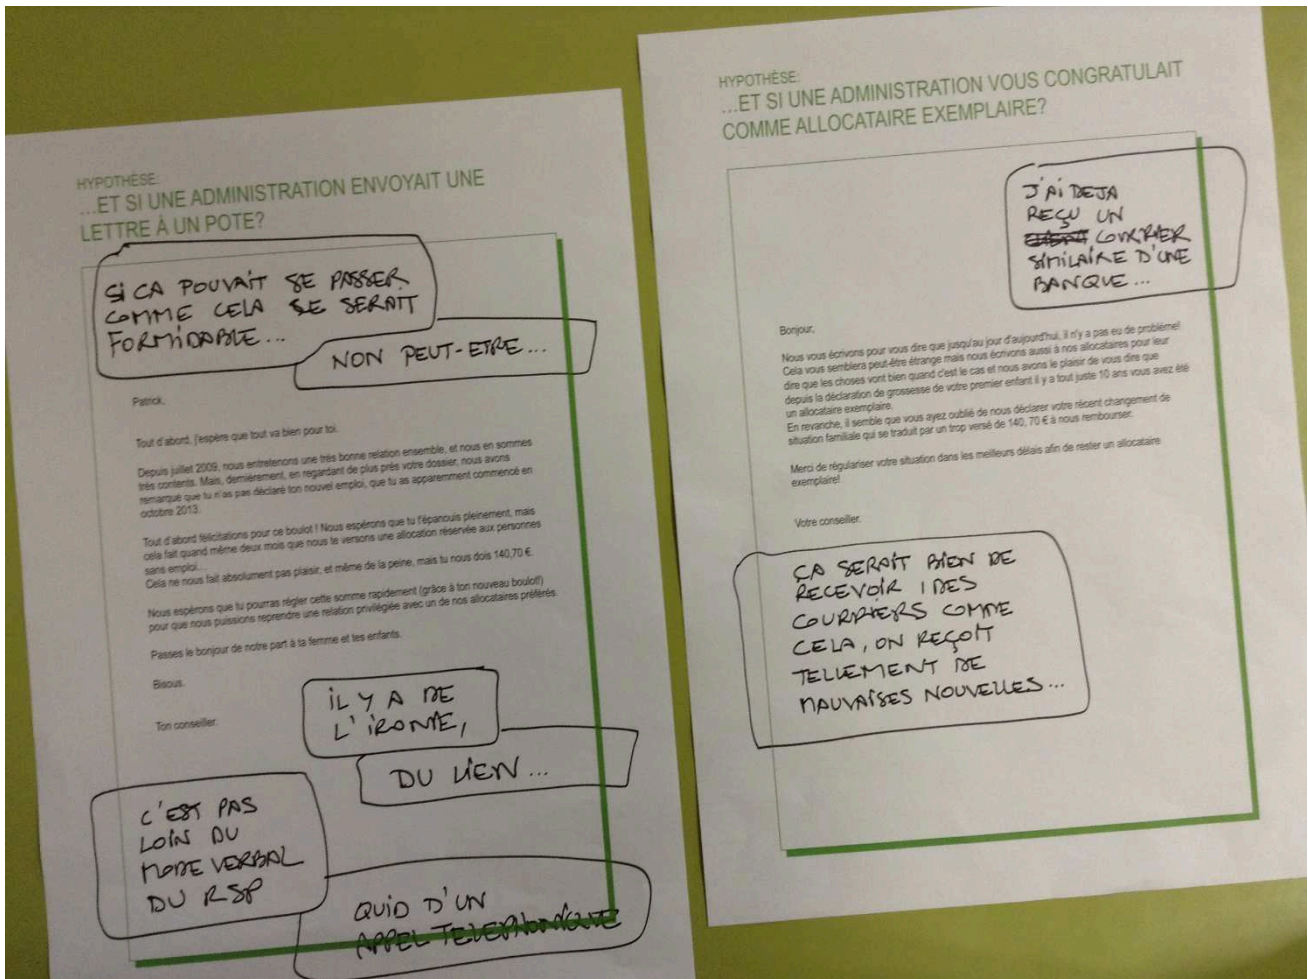 HYPOTHÈSE:
...ET SI UNE ADMINISTRATION ENVOYAIT UNE
LETTRE À UN POTE?
SI CA POUVAIT SE PASSER
COMME CELA SE SERAIT
FORMIDABLE...
NON PEUT-ETRE...
Patrick,
Tout d'abord, j'espère que tout va bien pour toi.
Depuis juillet 2009, nous entretenons une très bonne relation ensemble, et nous en sommes
très contents. Mais, dernièrement, en regardant de plus près votre dossier, nous avons
remarqué que tu n'as pas déclaré ton nouvel emploi, que tu as apparemment commencé en
octobre 2013.
Tout d'abord félicitations pour ce boulot ! Nous espérons que tu t'épanouis pleinement, mais
cela fait quand même deux mois que nous te versons une allocation réservée aux personnes
sans emploi...
Cela ne nous fait absolument pas plaisir, et même de la peine, mais tu nous dois 140,70 €.
Nous espérons que tu pourras régler cette somme rapidement (grâce à ton nouveau boulot!)
pour que nous puissions reprendre une relation privilégiée avec un de nos allocataires préférés.
Passes le bonjour de notre part à ta femme et tes enfants.
Bisous.
Ton conseiller.
IL Y A DE
L'IRONIE,
DU LIEN...
C'EST PAS
LOIN DU
MODE VERBAL
DU RSP
QUID D'UN
APPEL TELEPHONIQUE
HYPOTHÈSE:
...ET SI UNE ADMINISTRATION VOUS CONGRATULAIT
COMME ALLOCATAIRE EXEMPLAIRE?
J'AI DEJA
REÇU UN
COURRIER
SIMILAIRE D'UNE
BANQUE...
Bonjour,
Nous vous écrivons pour vous dire que jusqu'au jour d'aujourd'hui, il n'y a pas eu de problème!
Cela vous semblera peut-être étrange mais nous écrivons aussi à nos allocataires pour leur
dire que les choses vont bien quand c'est le cas et nous avons le plaisir de vous dire que
depuis la déclaration de grossesse de votre premier enfant il y a tout juste 10 ans vous avez été
un allocataire exemplaire.
En revanche, il semble que vous ayez oublié de nous déclarer votre récent changement de
situation familiale qui se traduit par un trop versé de 140, 70 € à nous rembourser.
Merci de régulariser votre situation dans les meilleurs délais afin de rester un allocataire
exemplaire!
Votre conseiller.
ÇA SERAIT BIEN DE
RECEVOIR DES
COURRIERS COMME
CELA, ON REÇOIT
TELLEMENT DE
MAUVAISES NOUVELLES...